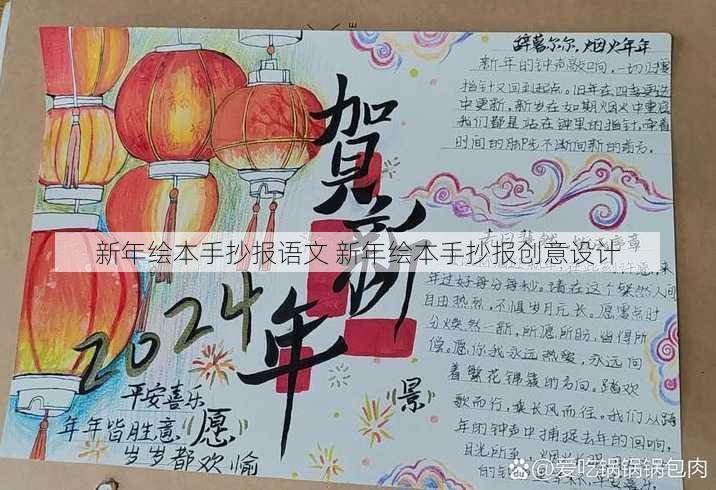 辞暮尔尔，烟火年年
新年的钟声敲响，一切归零
指针又回到起点。旧年在四季更迭
中更新，新岁在如期烟火中重启
我们都是站在钟里的指针，牵着
时间的脚步不断向新的前方。
贺新年
2024
新年绘本手抄报语文 新年绘本手抄报创意设计
来
年过好每分每秒。请在这个灿然人间
自由热烈，不惧岁月冗长。愿零点时
分焕然一新，所愿所盼，皆得所
偿。愿你我永远热爱，永远向
着繁花锦簇的名向。踏欢
歌而行，乘长风而任。我们从跨
年的钟声中捕捉去年的回响，
目光所
平安喜乐
年年皆胜意
岁岁都欢愉
愿
景
@爱吃锅锅锅包肉